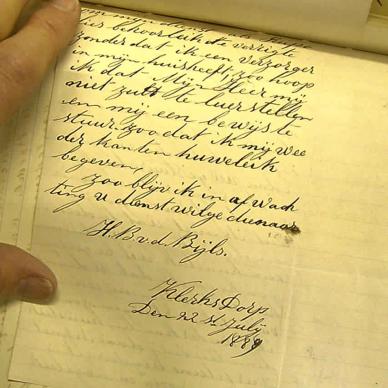 zonder dat ik een verzorger
in mijn huis heeft, zoo hoop
ik dat Mijn Heer mij
niet zult te leur stellen
en mij een bewijs te
stuur zoo dat ik mij wee
der kan ten huwelik
begeven,
zoo blijv ik in af wach
ting u dienst wilge dienaar
H. B. v. d. Bijls.
Klerks Dorp
Den 22 st July
1889